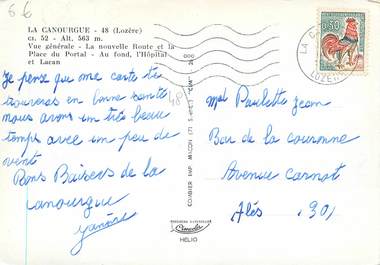 6 6
LA CANOURGUE - 48 (Lozère)
cs. 52 - Alt. 563 m.
Vue générale - La nouvelle Route et la
Place du Portal - Au fond, l'Hôpital
et Lucan
Je pense que ma carte te
trouvera en bonne santé
nous avons un très beau
temps avec un peu de
vent
Bons Baisers de la
Canourgue
48
COMBIER IMP. MACON (S.-et-L.) "CIM"
Cimcolor
HELIO
0,50
LA C
LOZÈRE
Paulette Jean
Bar de la couronne
Avenue Carnot
Alès (30)